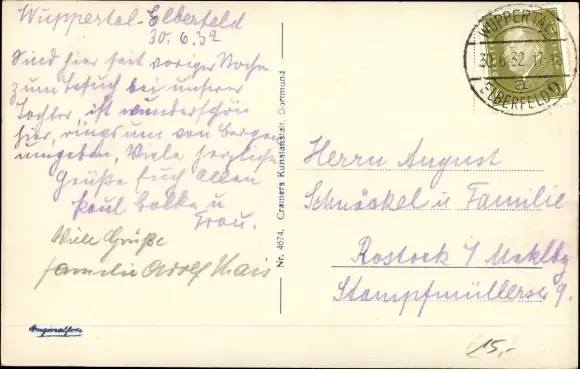 Wuppertal-Elberfeld
30.6.32
Sind hier seit voriger Woche
zum Besuch bei unserer
Tochter, ist wunderschön
hier, rings um von Bergen
umgeben, Viele herzliche
Grüße Euch Allen
Paul u.
Frau.
Viele Grüße
Familie Adolf
Nr. 4674. Cramers Kunstanstalt, Dortmund
WUPPERTAL
30.6.32.17-
a
ELBERFELD
Herrn August
Schnöckel u Familie
Rostock i/ Meklbg
Stampfmüllerstr 9.
15,-